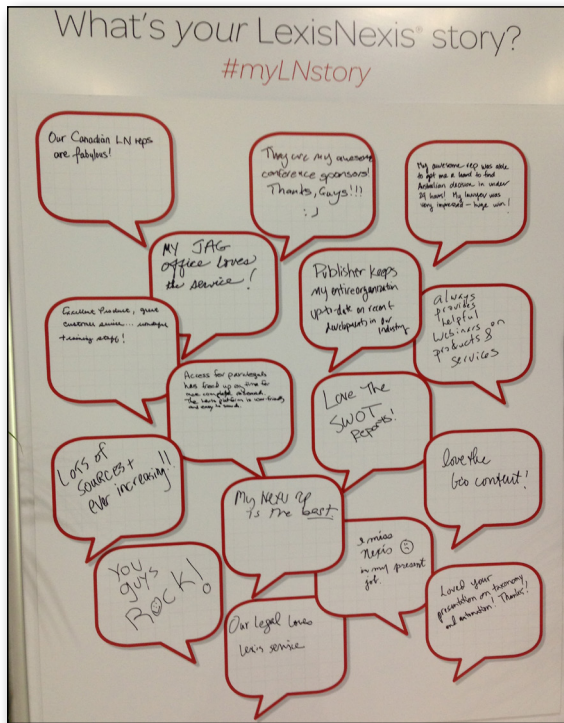 What's your LexisNexis® story?
#myLNstory
Our Canadian LN reps
are fabulous!
They are my awesome
conference sponsors!
Thanks, Guys!!!
:)
My awesome rep was able
to get me a hard to find
Australian decision in under
24 hours! My lawyer was
very impressed – huge win!
MY JAG
office loves
the service!
Publisher keeps
my entire organization
up-to-date on recent
developments in our
industry
always
provides
helpful
webiners on
products &
services
Excellent Product, great
customer service...
training staff!
Access for paralegals
has freed up time for
more complicated
The Lexis platform is user friendly
and easy to
Love The
SWOT
Reports!
Lots of
sources +
ever increasing!!
My Nexis
is the best
love the
content!
I miss
Nexis
in my present
job.
You
guys
ROCK!
Our legal loves
Lexis service
Loved your
presentation on taxonomy
and automation! Thanks!